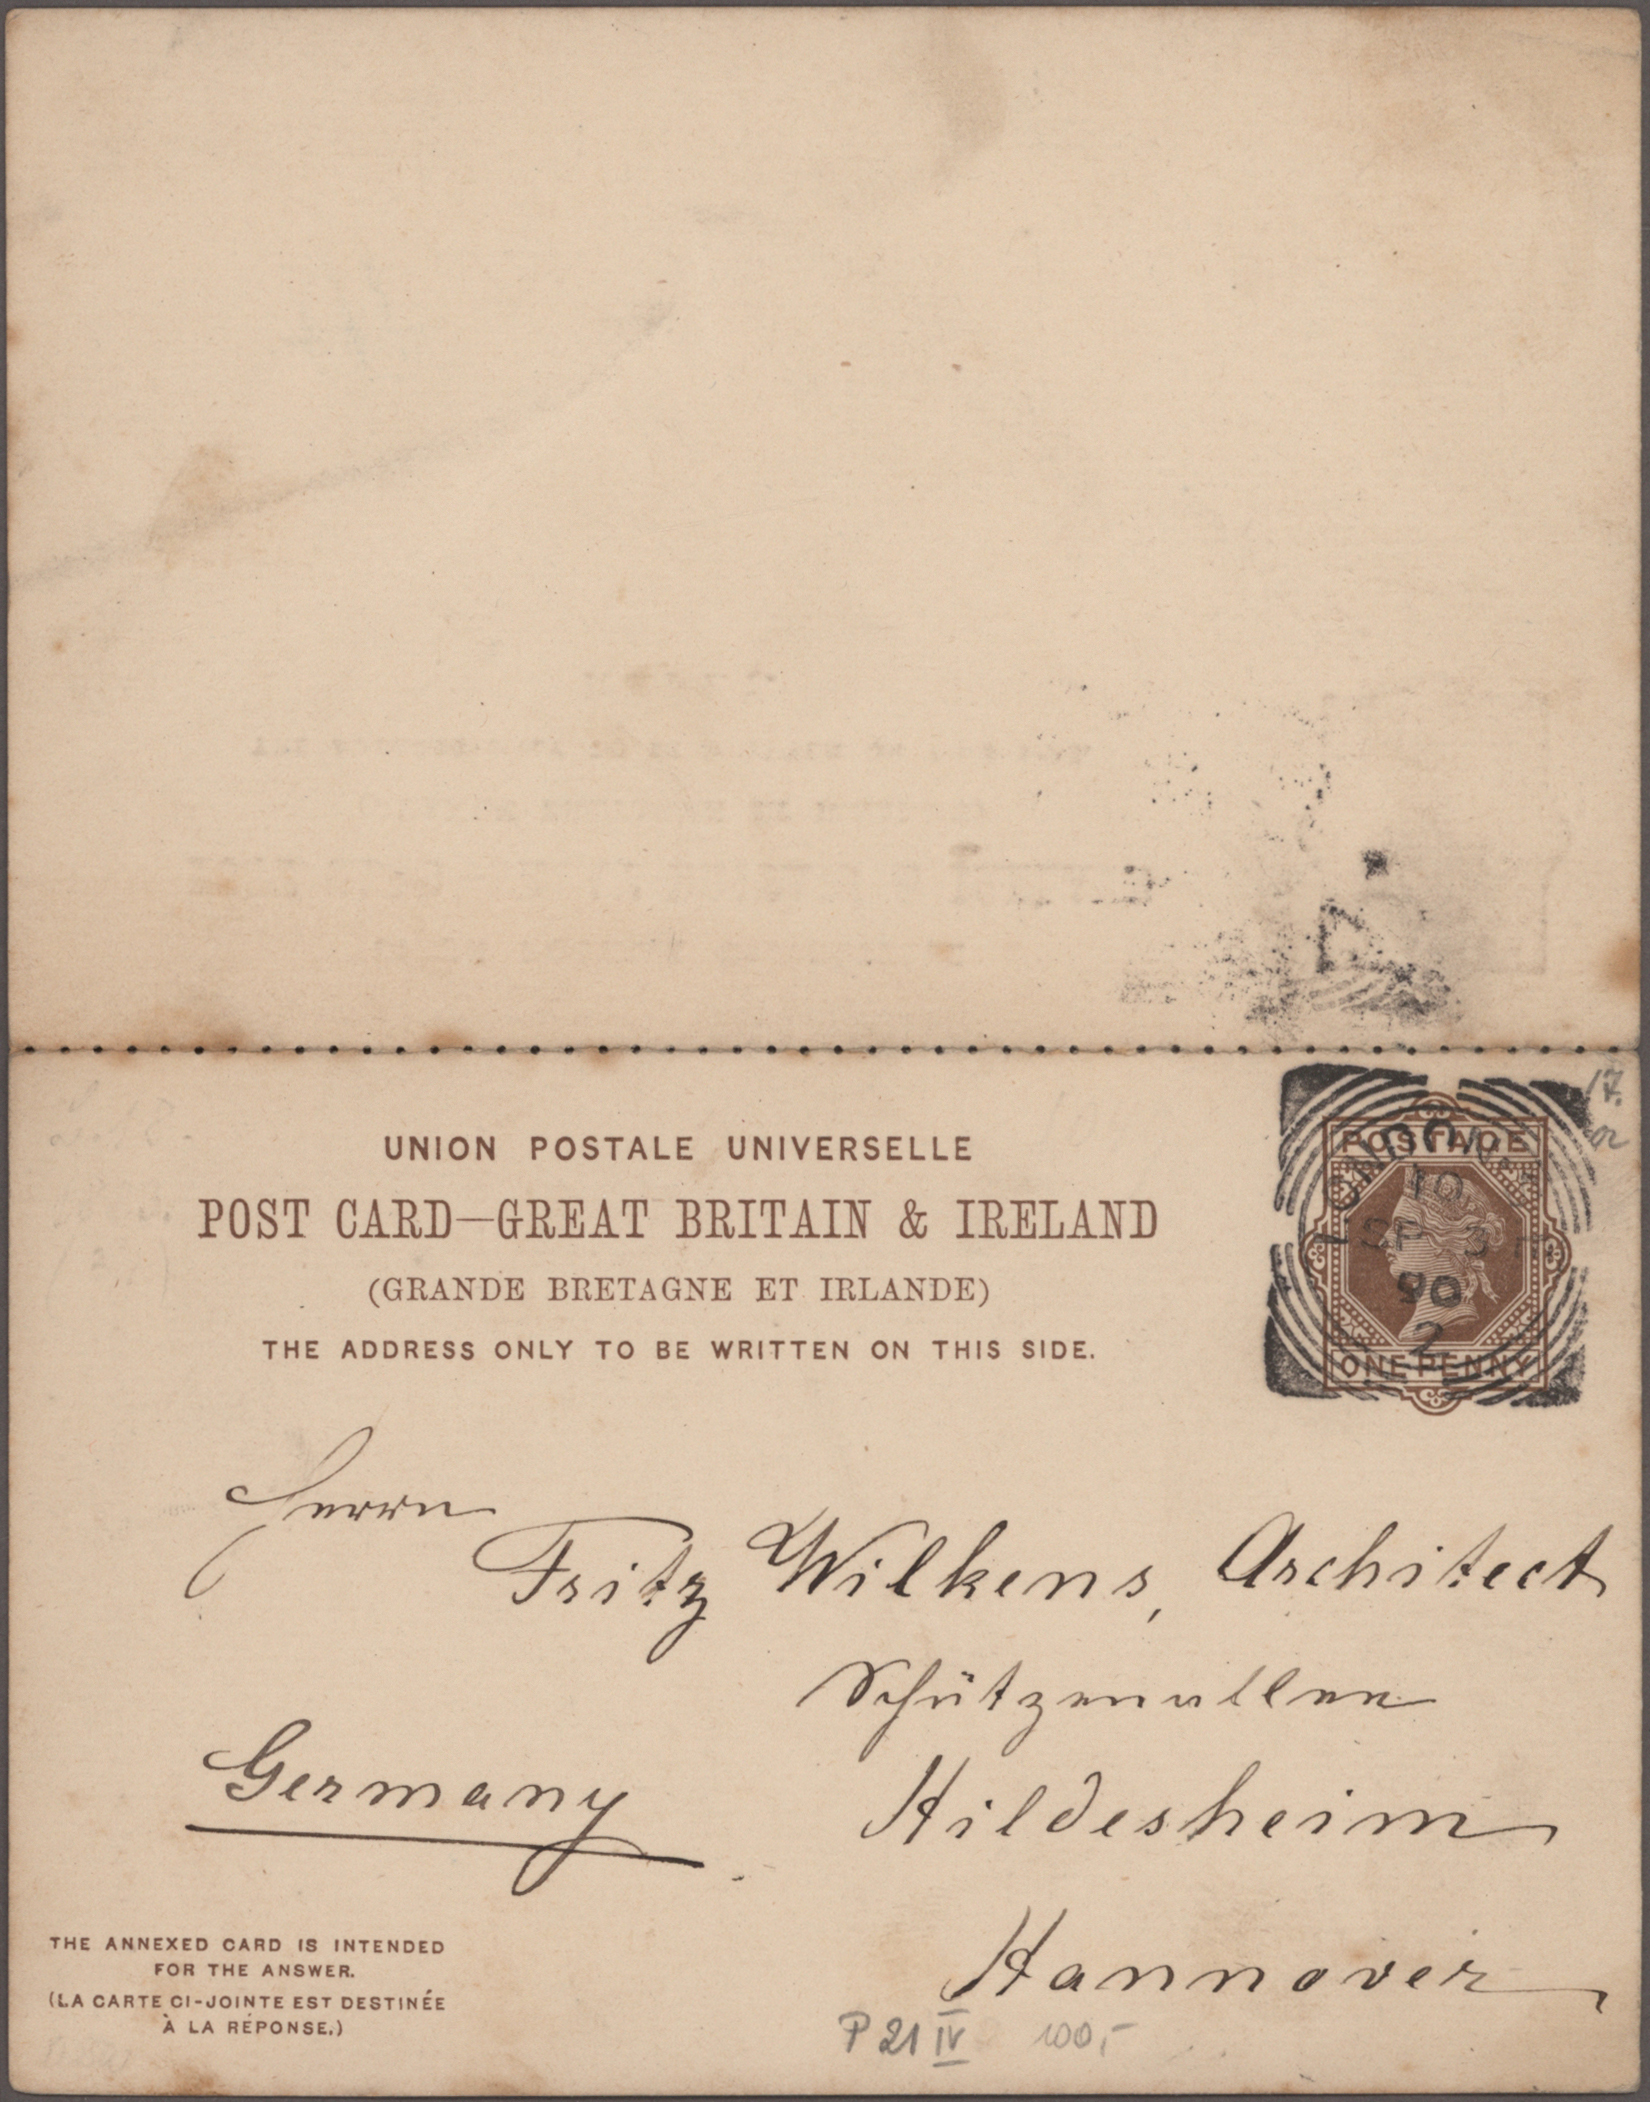 UNION POSTALE UNIVERSELLE
POST CARD—GREAT BRITAIN & IRELAND
(GRANDE BRETAGNE ET IRLANDE)
THE ADDRESS ONLY TO BE WRITTEN ON THIS SIDE.
POSTAGE
ONE PENNY
LONDON
10
SP 3
90
2
17.
Herrn
Fritz Wilkens, Architect
Schützenallee
Germany
Hildesheim
Hannover
THE ANNEXED CARD IS INTENDED
FOR THE ANSWER.
(LA CARTE CI-JOINTE EST DESTINÉE
À LA RÉPONSE.)
P 21 IV 100,-